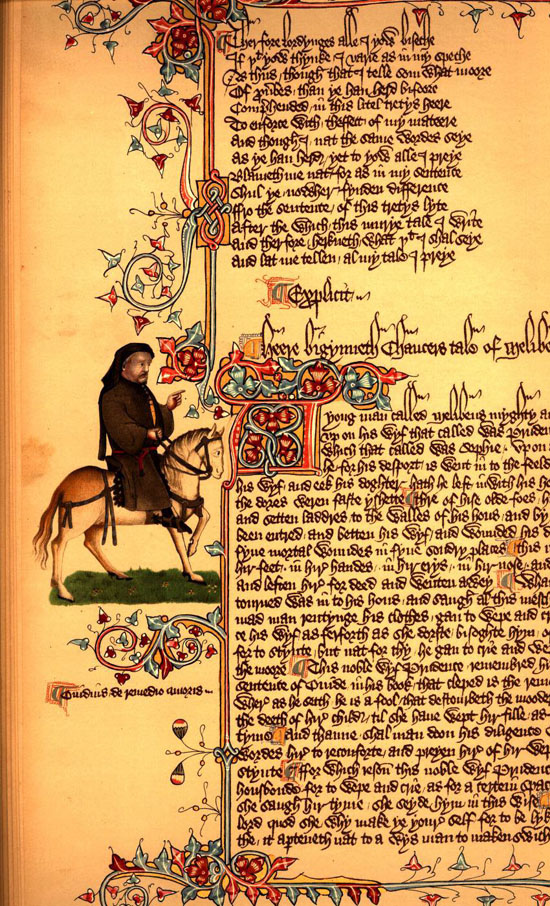 Therfore lordynges alle I yow biseche
If þt yow thynke I varie as in my speche
As thus though that I telle som what moore
Of prouerbes than ye han herd bifoore
Comprehended in this litel tretys heere
To enforce with theffect of my mateere
And though I nat the same wordes seye
As ye han herd yet to yow alle I preye
Blameth me nat for as in my sentence
Shul ye nowher fynden difference
Fro the sentence of this tretys lyte
After the which this murye tale I write
And therfore herkneth what þt I shal seye
And lat me tellen al my tale I preye
Explicit
Heere bigynneth Chaucers tale of Melibe
A yong man called Melibeus myghty and
vp on his wyf that called was Prudence
which that called was Sophie vpon
he for his desport is went in to the feeld
his wyf and eek his doghter hath he left inwith his ho
the dores weren faste yshette thre of hise olde foes h
and setten laddres to the walles of his hous and by
been entred and betten his wyf and wounded his d
fyue mortal woundes in fyue sondry places this i
hir feet in hir handes in hir erys in hir nose and
and leften hire for deed and wenten awey Whan
tourned was in to his hous and saugh al this mesch
mad man rentynge his clothes gan to wepe and cri
ce his wyf as ferforth as she dorste bisoghte hym o
for to stynte but nat for thy he gan to crie and wepe
the moore This noble wyf Prudence remembred hi
sentence of Ouide in his book that cleped is the reme
where as he seith he is a fool that destourbeth the mooder
the deeth of hire child til she haue wept hir fille as
tyme and thanne shal man doon his diligence
wordes hire to reconforte and preyen hire of hir wep
stynte For which reson this noble wyf Prudenc
housbonde for to wepe and crie as for a certein spac
she saugh hir tyme she seyde hym in this wise
lord quod she why make ye youre self for to be lyk
the it aperteneth nat to a wys man to maken swich
Ouidius de remedio amoris